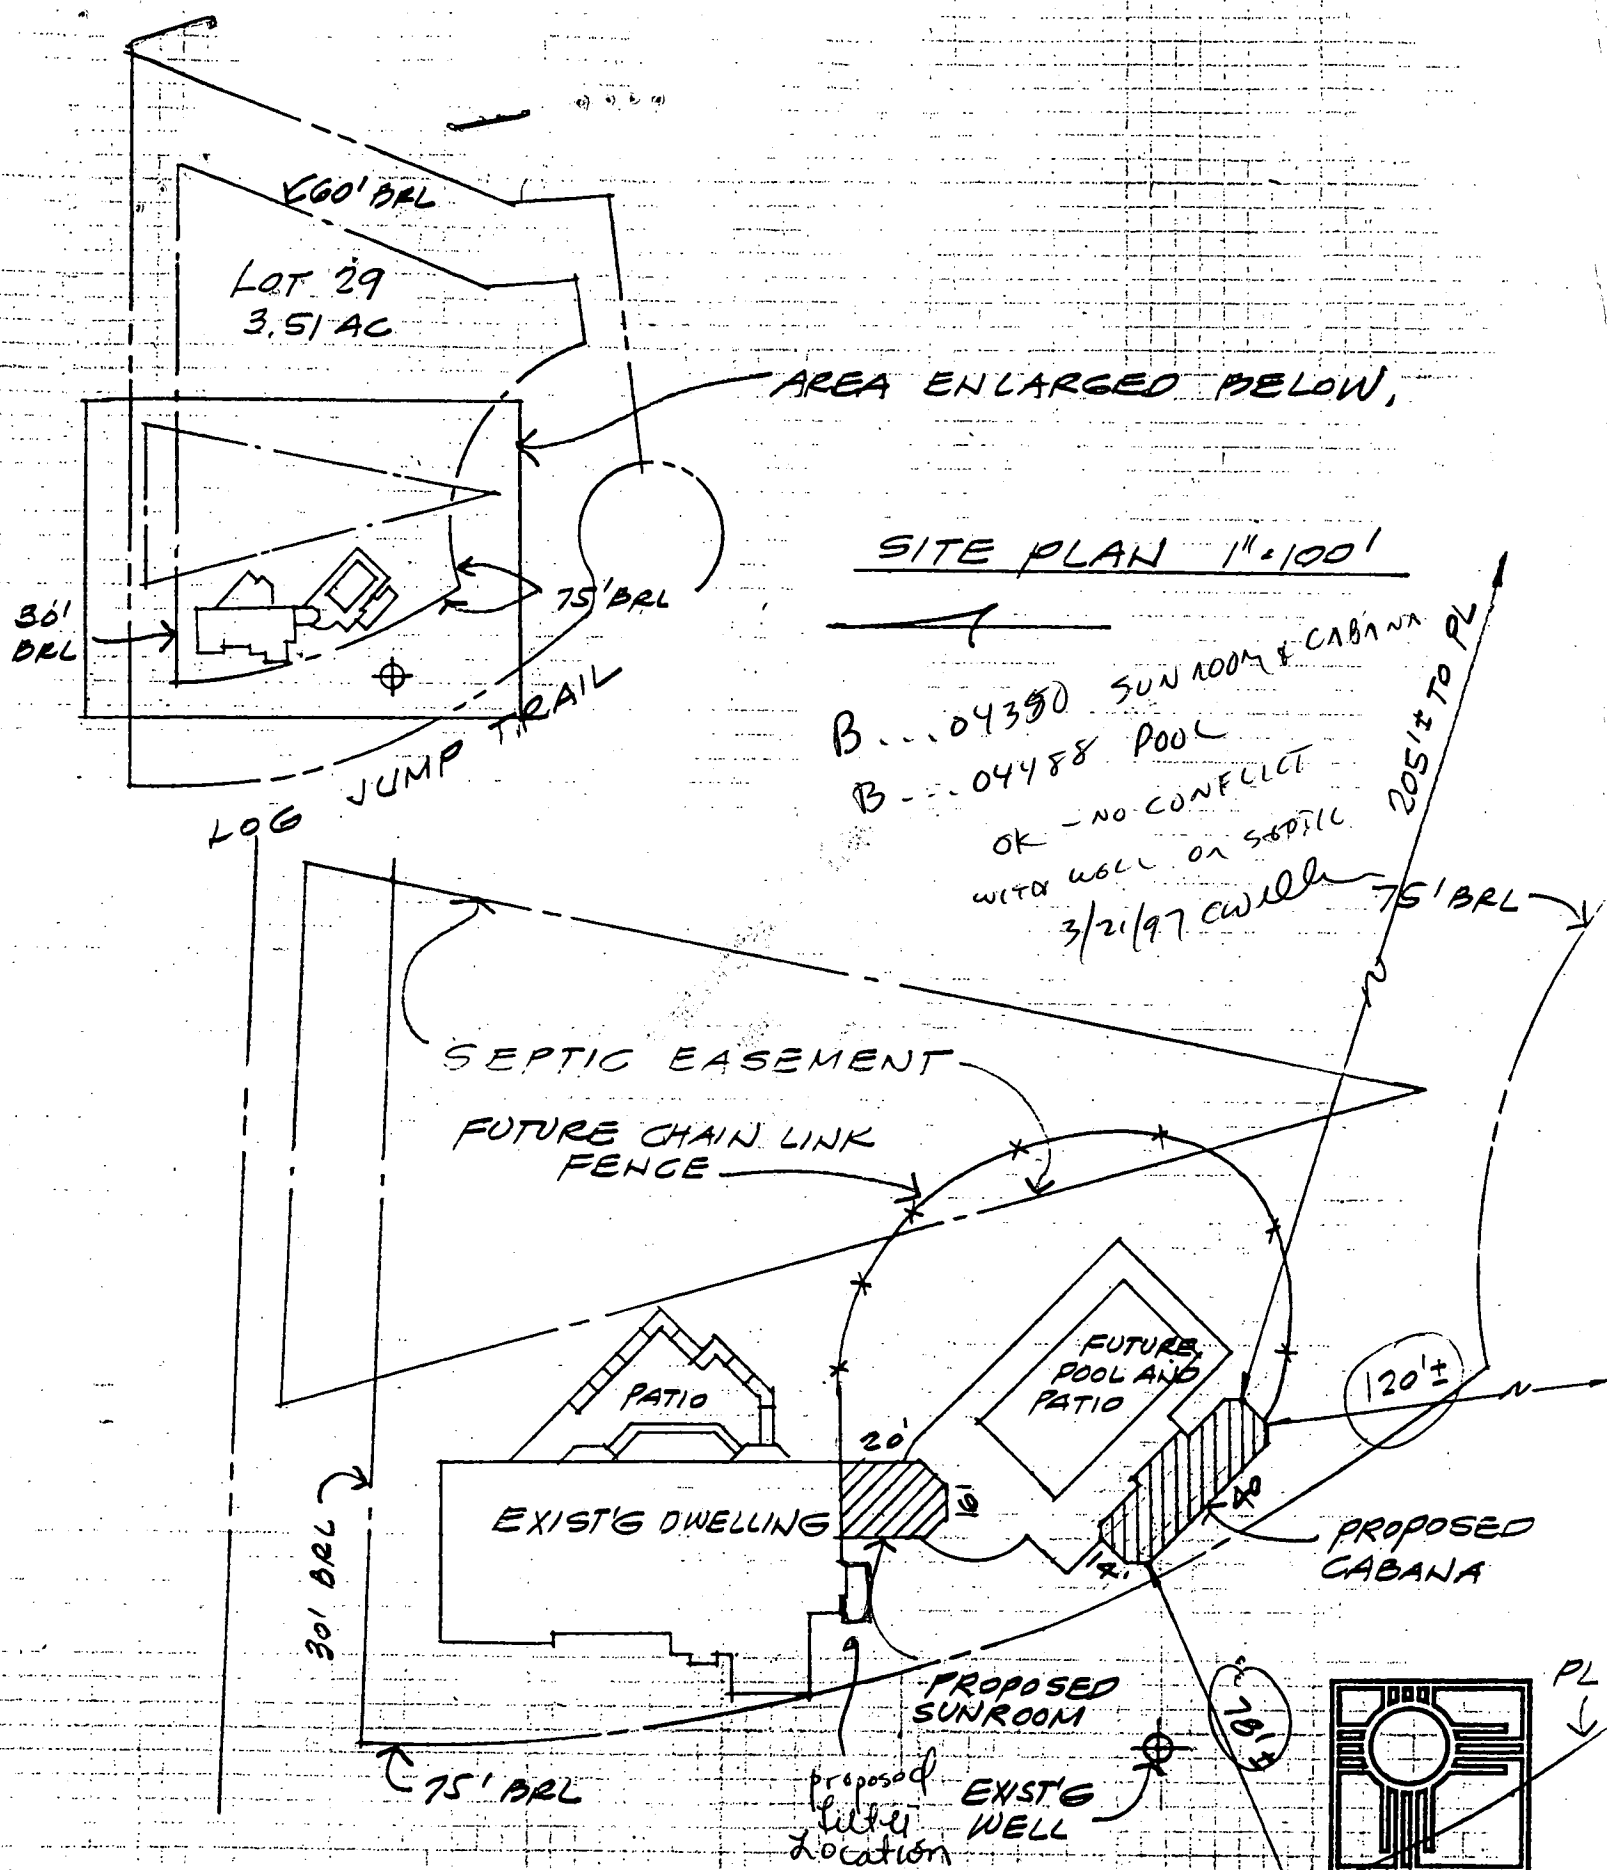 60' BRL
LOT 29
3.51 AC
AREA ENLARGED BELOW,
SITE PLAN 1"=100'
30'
BRL
75' BRL
LOG JUMP TRAIL
B...04390 SUNROOM & CABANA
B...04488 POOL
OK - NO CONFLICT
WITH WELL OR SEPTIC
3/21/97
205'± TO PL
75' BRL
SEPTIC EASEMENT
FUTURE CHAIN LINK
FENCE
FUTURE
POOL AND
PATIO
120'±
PATIO
20'
16'
EXIST'G DWELLING
40
14'
PROPOSED
CABANA
30' BRL
PROPOSED
SUNROOM
78'±
PL
75' BRL
proposed
filter
Location
EXIST'G
WELL